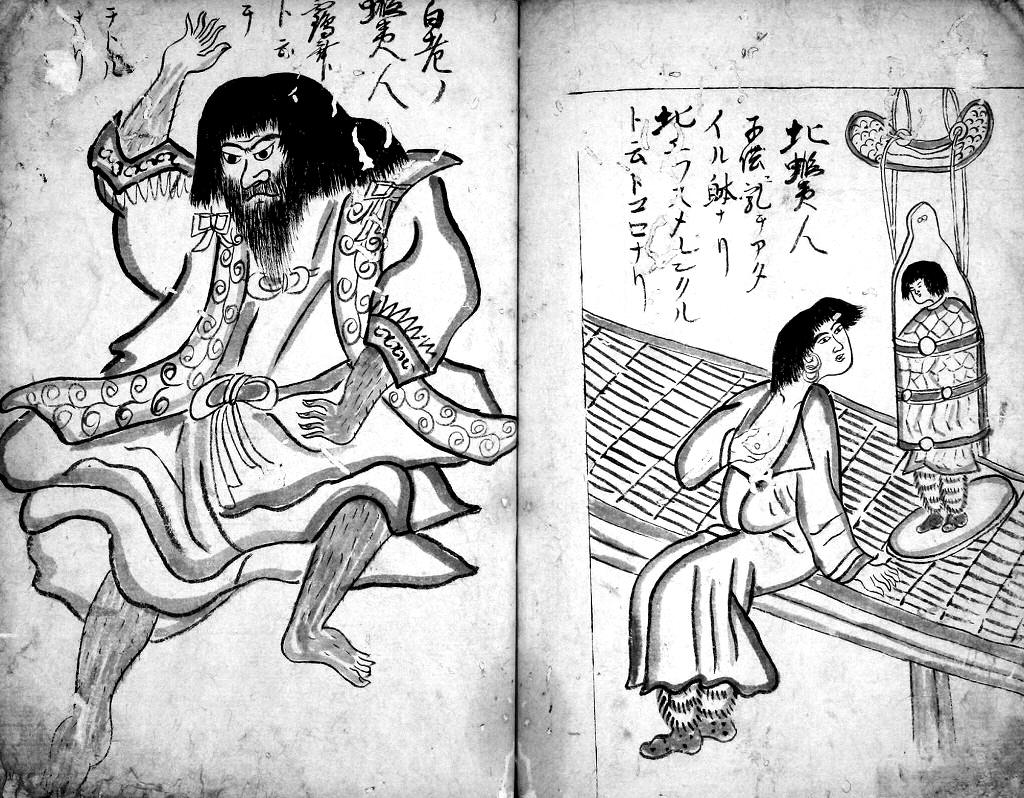 白老ノ
蝦夷人
鶴舞
ト云
テ
ヲトル
ナリ
北蝦夷人
子供ニ乳ヲアタ
イル躰ナリ
北エソスメレンクル
ト云トコロナリ